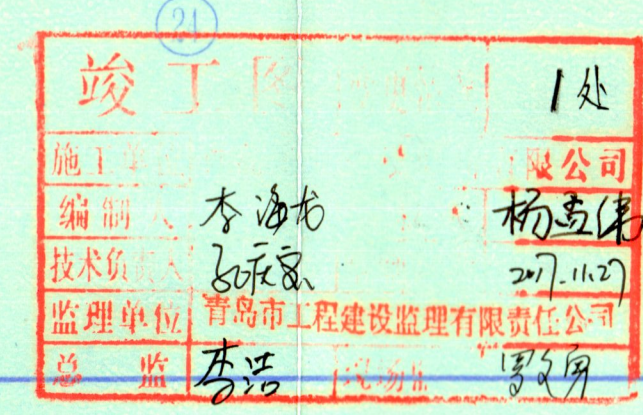 21
竣工图 1处
施工单位 限公司
编制人 李海龙 杨孟伟
技术负责人 2017.11.27
监理单位 青岛市工程建设监理有限责任公司
总监 李浩 现场监 罗文勇